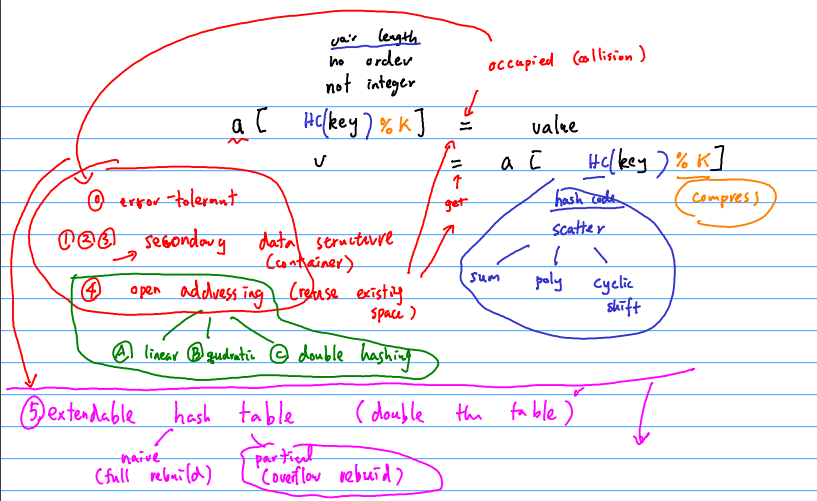 vair length
no order
not integer
occupied (collision)
a [ HC(key) % K ] = value
v = a [ HC(key) % K ]
get
hash code
compress
scatter
sum poly cyclic shift
⓪ error-tolerant
① ② ③ → secondary data structure
(container)
④ open addressing (reuse existing
space)
Ⓐ linear Ⓑ qudratic Ⓒ double hashing
⑤ extendable hash table (double the table)
naive partial
(full rebuild) (overflow rebuid)